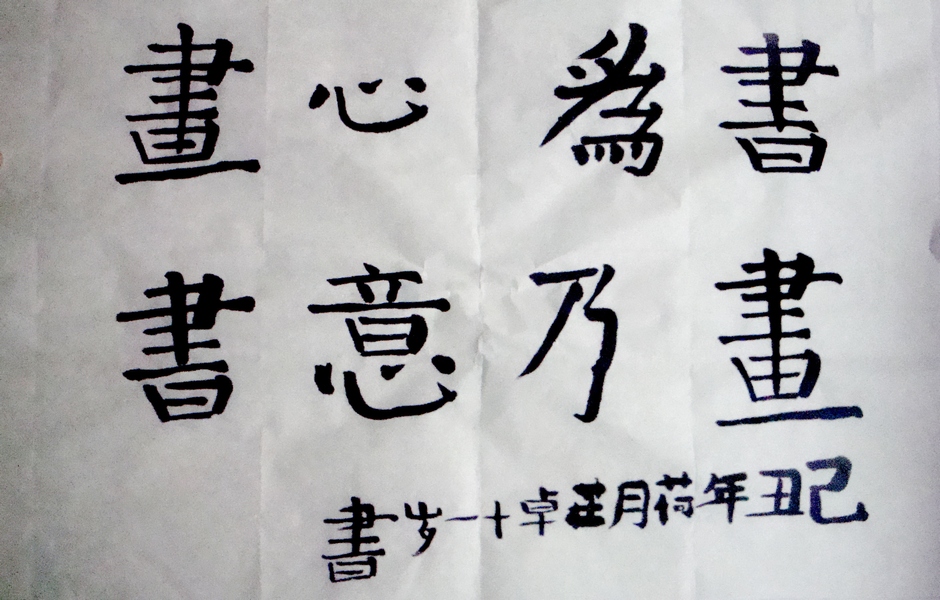 書爲心畫
畫乃意書
己丑年荷月卓十一岁書